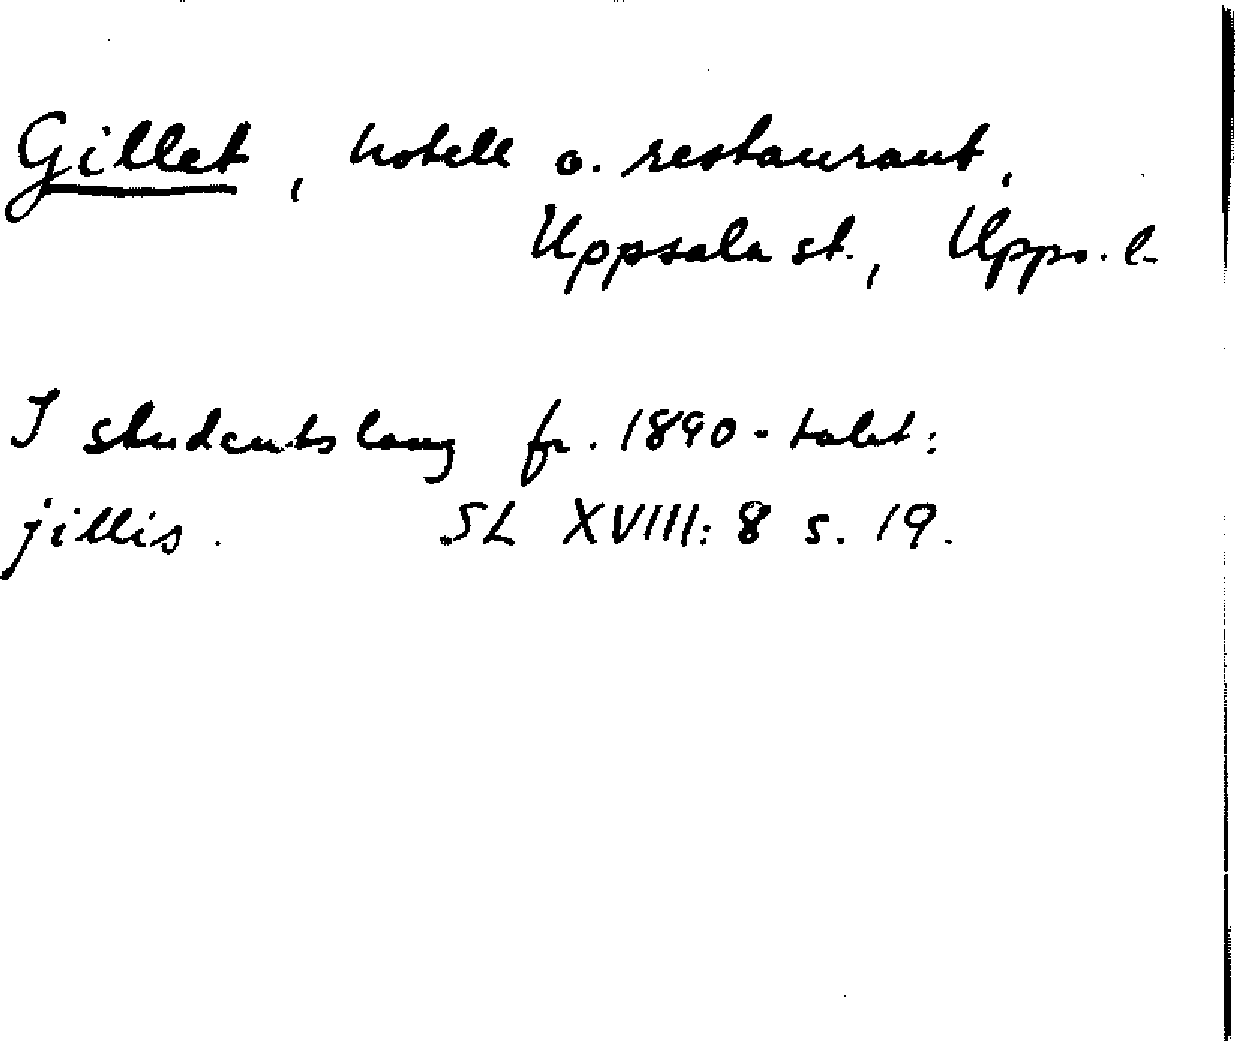 Gillet, hotell o. restaurant,
Uppsala st., Upps. l.
I studentslang fr. 1890-talet:
jillis. SL XVIII: 8 s. 19.